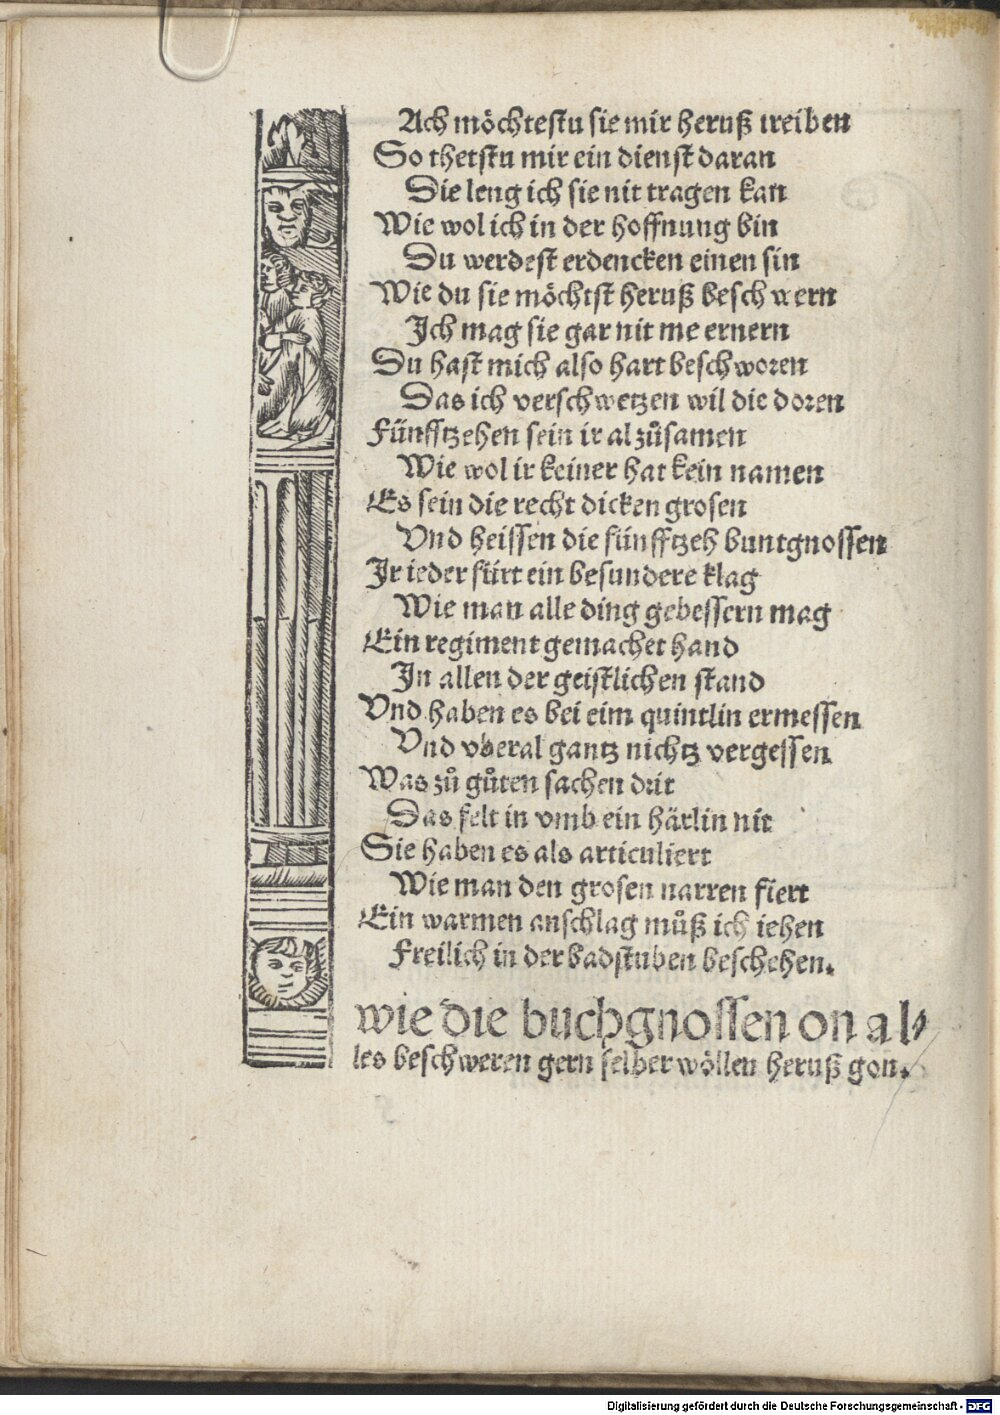 Ach möchtestu sie mir heruß treiben
So thetstu mir ein dienst daran
Die leng ich sie nit tragen kan
Wie wol ich in der hoffnung bin
Du werdest erdencken einen sin
Wie du sie möchtst heruß beschwern
Ich mag sie gar nit me ernern
Du hast mich also hart beschworen
Das ich verschwetzen wil die doren
Fünfftzehen sein ir al zůsamen
Wie wol ir keiner hat kein namen
Es sein die recht dicken grosen
Vnd heissen die fünfftzeh buntgnossen
Ir ieder fürt ein besundere klag
Wie man alle ding gebessern mag
Ein regiment gemachet hand
In allen der geistlichen stand
Vnd haben es bei eim quintlin ermessen
Vnd vberal gantz nichtz vergessen
Was zů gůten sachen drit
Das felt in vmb ein härlin nit
Sie haben es als articuliert
Wie man den grosen narren fiert
Ein warmen anschlag můß ich iehen
Freilich in der badstuben beschehen.
wie die buchgnossen on al⸗
les beschweren gern selber wöllen heruß gon.
Digitalisierung gefördert durch die Deutsche Forschungsgemeinschaft - DFG